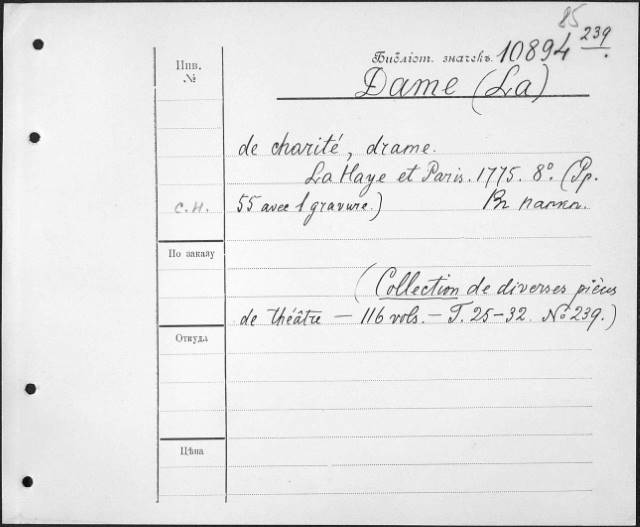 85
Инв.
№
Библіот. значекъ. 10894 239
Dame (La)
de charité, drame.
La Haye et Paris. 1775. 8º. (Pp.
с.н. 55 avec 1 gravure.) Въ папкѣ.
По заказу
(Collection de diverses pièces
de théâtre — 116 vols. — T. 25–32. № 239.)
Откуда
Цѣна